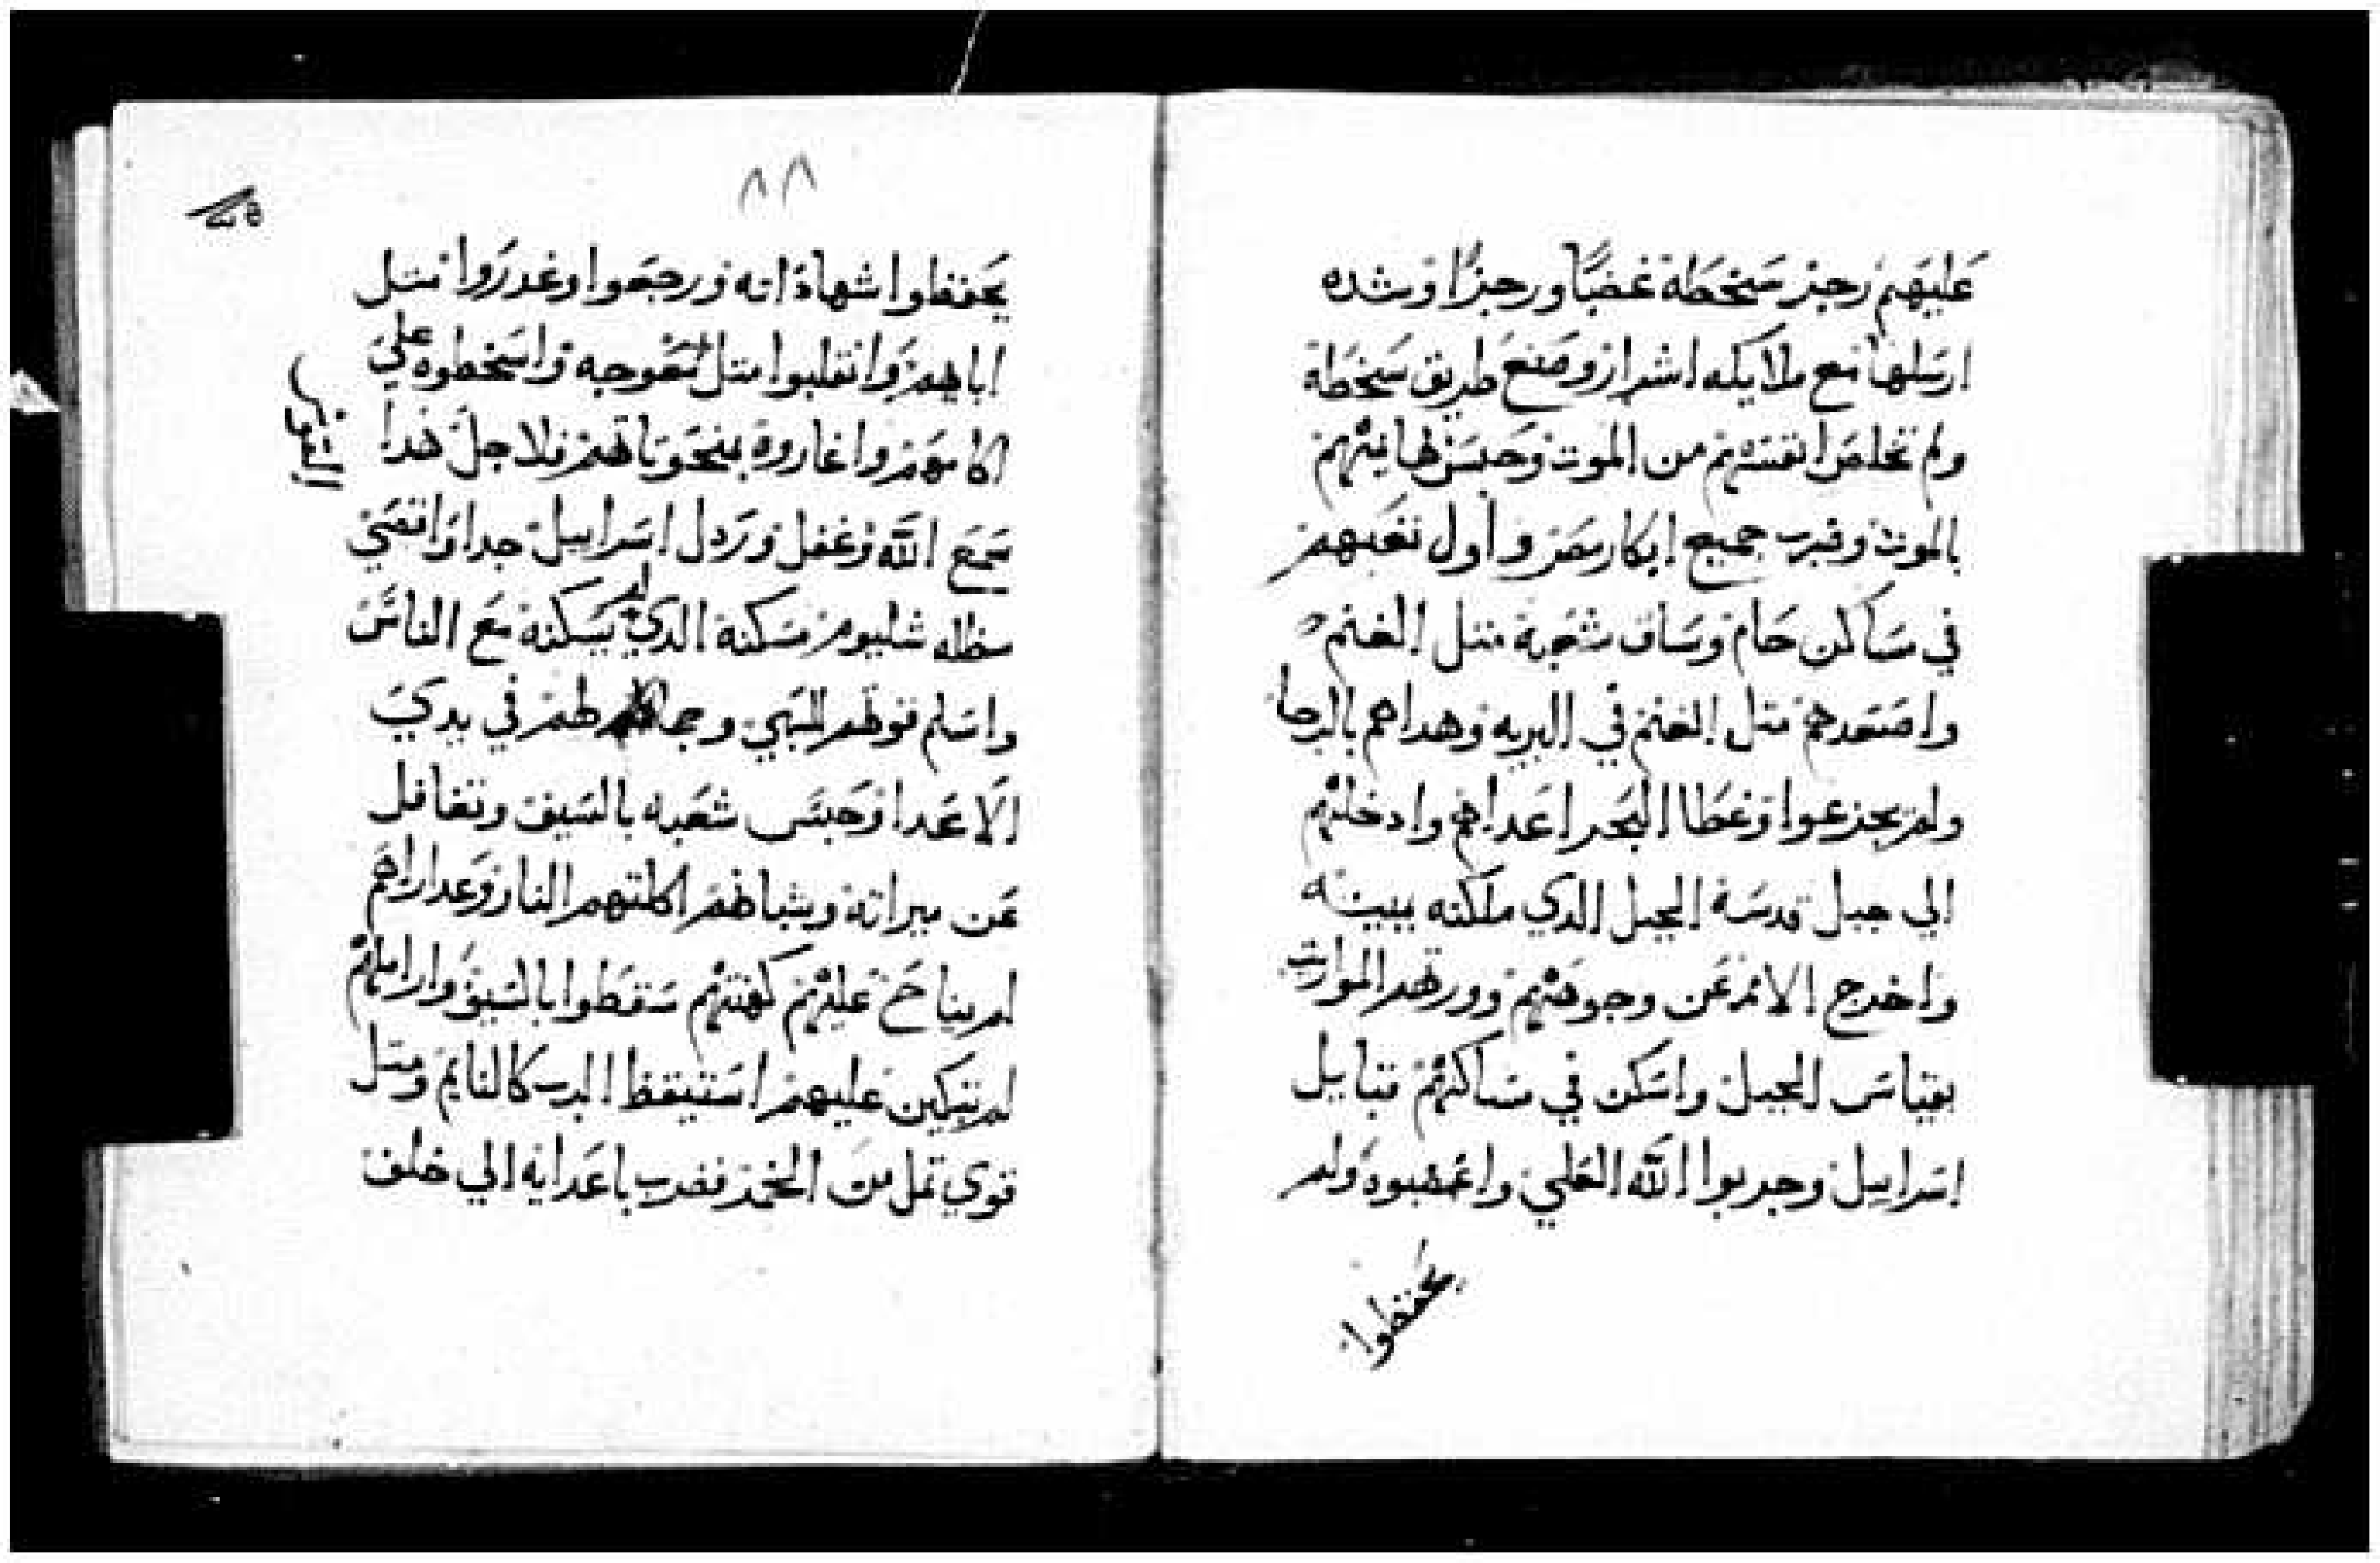 عليهم رجز سخطة غضبًا ورجزًا وشده
ارسلها مع ملايكه اشرار وصنع طريق سخطة
ولم تخلص انفسهم من الموت وحبس بهايمهم
بالموت وضرب جميع ابكار مصر واول تعبهم
في مساكن حام وساق شعبة متل الغنم
واصعدهم متل الغنم في البريه وهداهم بالرجا
ولم يجزعوا وغطا البحر اعداهم وادخلهم
الي جبل قدسة الجبل الدي ملكته يمينه
واخرج الامم عن وجوههم وورتهم الموارث
بقياس الحبل واسكن في مساكنهم قبايل
اسراييل وجربوا الله العلي واغضبوه ولم
يحفظوا
٨٨
يحفظوا شهاداته ورجعوا وغدروا متل
اباهم وانقلبوا متل معوجه واسخطوه علي
اكامهم واغاروه بمنحوتاتهم فلاجل هدا
سمع الله وغفل وردل اسراييل جدا واقصي
شليوم مسكنة الدي سكنه مع الناس
واسلم قوتهم للسبي وجمالهم في يدي
الاعدا وحبس شعبه بالسيف وتغافل
عن ميراته وشبانهم اكلتهم النار وعداراهم
لم يناح عليهم كهنتهم سقطوا بالسيف واراملهم
لم يبكين عليهم استيقظ الرب كالنايم ومتل
قوي تمل من الخمر فضرب اعدايه الي خلف